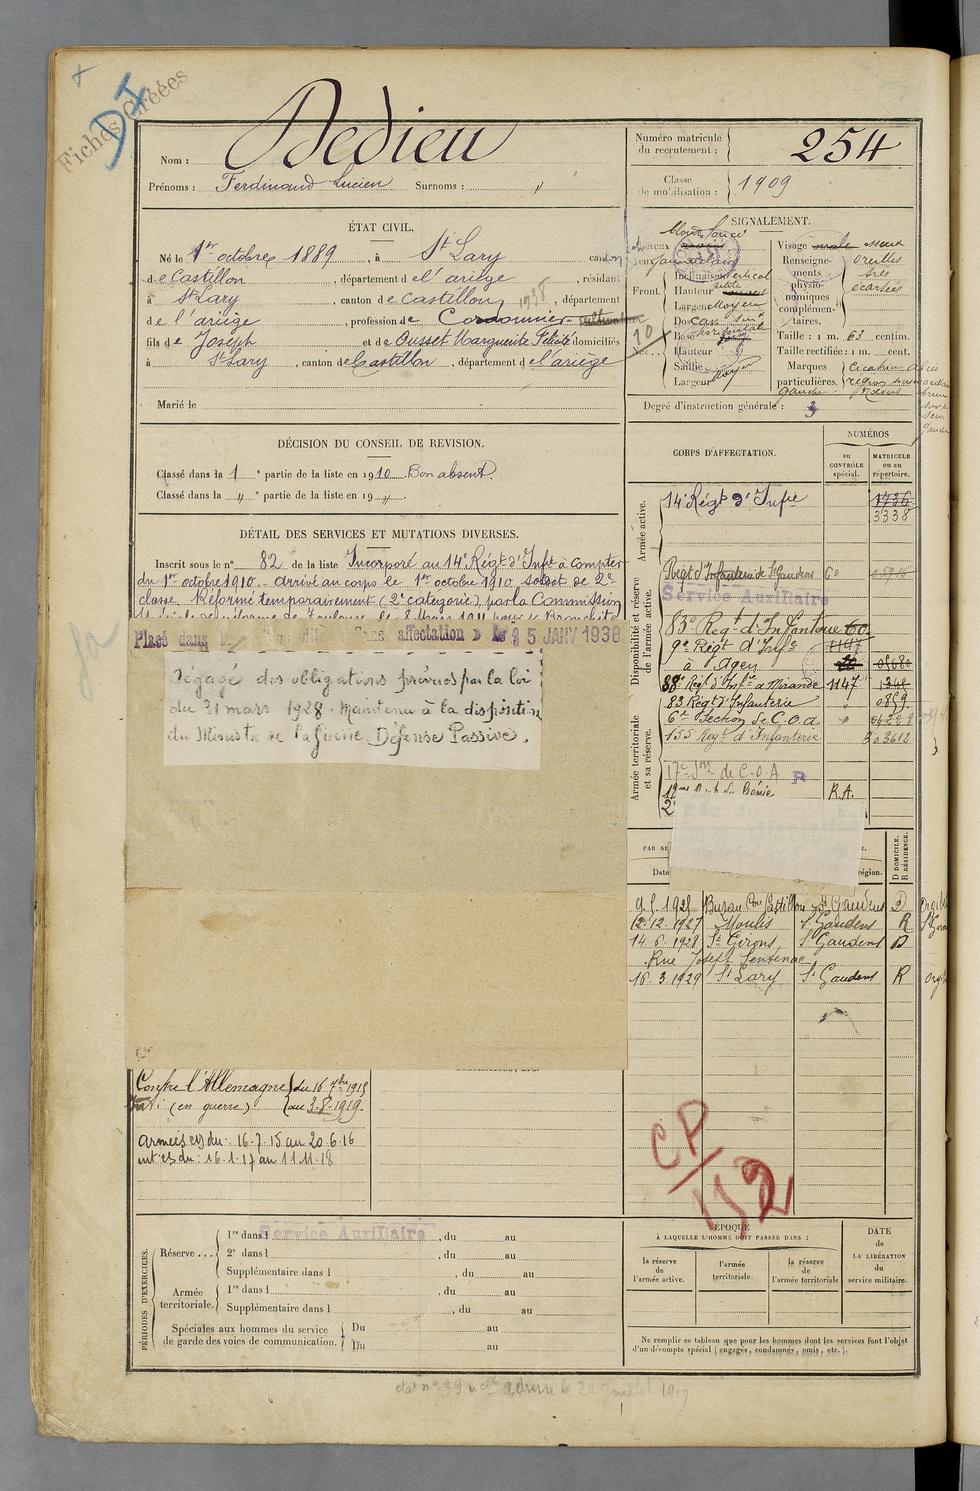 Fiches Créées
DI
Nom : Dedieu
Prénoms : Ferdinand Lucien Surnoms : "
Numéro matricule du recrutement : 254
Classe de mobilisation : 1909
ÉTAT CIVIL.
Né le 1er octobre 1889, à St Lary canton
de Castillon, département de l'ariège, résidant
à St Lary, canton de Castillon, 1938, département
de l'ariège, profession de Cordonnier cultivateur
fils de Joseph et de Ousset Marguerite Félicité domiciliés
à St Lary, canton de Castillon, département de l'ariège
Marié le
SIGNALEMENT.
blond foncé
Cheveux
Yeux
Front.
Inclinaison vertical
Hauteur petite
Largeur Moyenne
Nez
Dos cave
Base horizontale
Hauteur
Saillie
Largeur
Visage ovale
Renseignements physionomiques complémentaires.
oreilles
très
écartées
Taille : 1 m. 63 centim.
Taille rectifiée : 1 m. cent.
Marques particulières.
gauche
Degré d'instruction générale : 3
DÉCISION DU CONSEIL DE REVISION.
Classé dans la 1e partie de la liste en 1910. Bon absent.
Classé dans la " e partie de la liste en 19 ".
DÉTAIL DES SERVICES ET MUTATIONS DIVERSES.
Inscrit sous le n° 82 de la liste Incorporé au 14e Régt d'Infie à compter
du 1er octobre 1910. arrivé au corps le 1er octobre 1910, soldat de 2e
classe. Réformé temporairement (2e catégorie) par la Commission
Plasé dans la Sans affectation » le 5 JANV 1938
Dégagé des obligations prévues par la loi
du 31 mars 1928. Maintenu à la disposition
du Ministre de la Guerre Défense Passive.
Contre l'Allemagne du 16 7bre 1915
(en guerre) au 3.8.1919.
armées du 16.7.15 au 20.6.16
du : 16.1.17 au 11.11.18
CORPS D'AFFECTATION.
NUMÉROS
AU CONTRÔLE spécial.
MATRICULE ou au répertoire.
Armée active.
14e Régt d'Infie 1736
3338
Disponibilité et réserve de l'armée active.
Régt d'Infanterie de St Gaudens 60
Service Auxiliaire
83e Régt d'Infanterie 60
9e Régt d'Infie 1147
à Agen 05680
88e Régt d'Infie à Mirande 1147 1348
Armée territoriale et sa réserve.
83 Régt d'Infanterie " 0859
6e Section de C.O.A "
155 Régt d'Infanterie 03612
17e Son de C.O.A R
R.A.
Date
région.
D DOMICILE. R RÉSIDENCE.
9.5.1925 Castillon St Gaudens D
12.12.1927 Moulis St Gaudens R
14.6.1928 St Girons St Gaudens D
Rue Joseph Sentenac
16.3.1929 St Lary St Gaudens R
CP/112
PÉRIODES D'EXERCICES.
Réserve ...
1re dans l Service Auxiliaire, du au
2e dans l , du au
Supplémentaire dans l , du au
Armée territoriale.
1re dans l , du au
Supplémentaire dans l , du au
Spéciales aux hommes du service de garde des voies de communication.
Du au
Du au
ÉPOQUE
À LAQUELLE L'HOMME DOIT PASSER DANS :
la réserve de l'armée active.
l'armée territoriale.
la réserve de l'armée territoriale
DATE de LA LIBÉRATION du service militaire.
Ne remplir ce tableau que pour les hommes dont les services font l'objet
d'un décompte spécial (engagés, condamnés, omis, etc.).